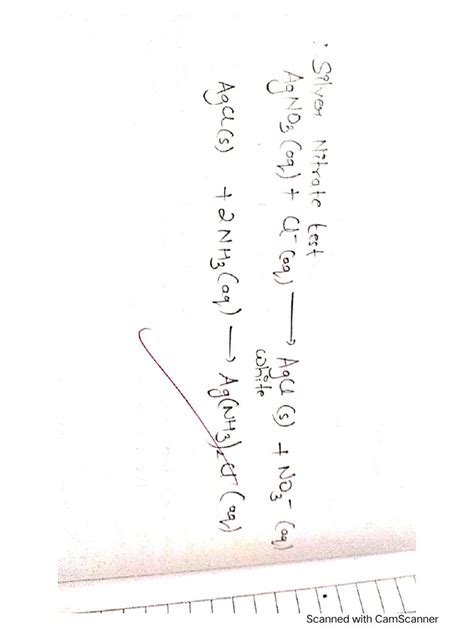 : Silver Nitrate test
AgNO₃ (aq) + Cl⁻ (aq) → AgCl (s) + NO₃⁻ (aq)
white
AgCl (s) + 2NH₃ (aq) → Ag(NH₃)₂Cl (aq)
Scanned with CamScanner